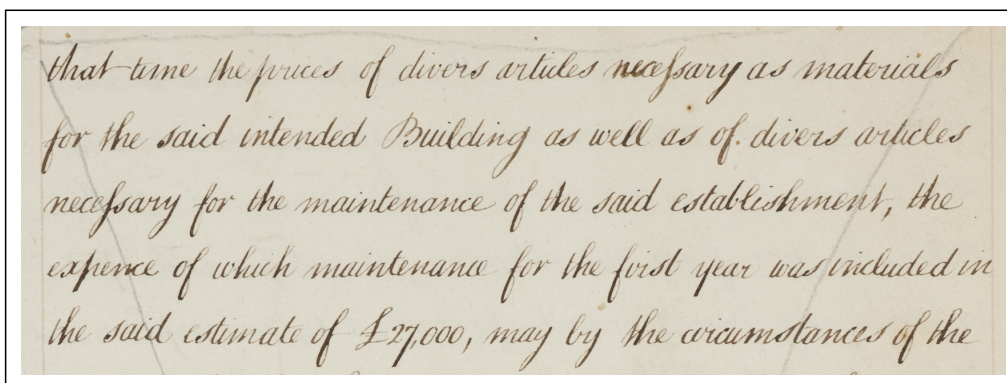 that time the prices of divers articles neceſsary as materials
for the said intended Building as well as of divers articles
neceſsary for the maintenance of the said establishment, the
expence of which maintenance for the first year was included in
the said estimate of £27,000, may by the circumstances of the